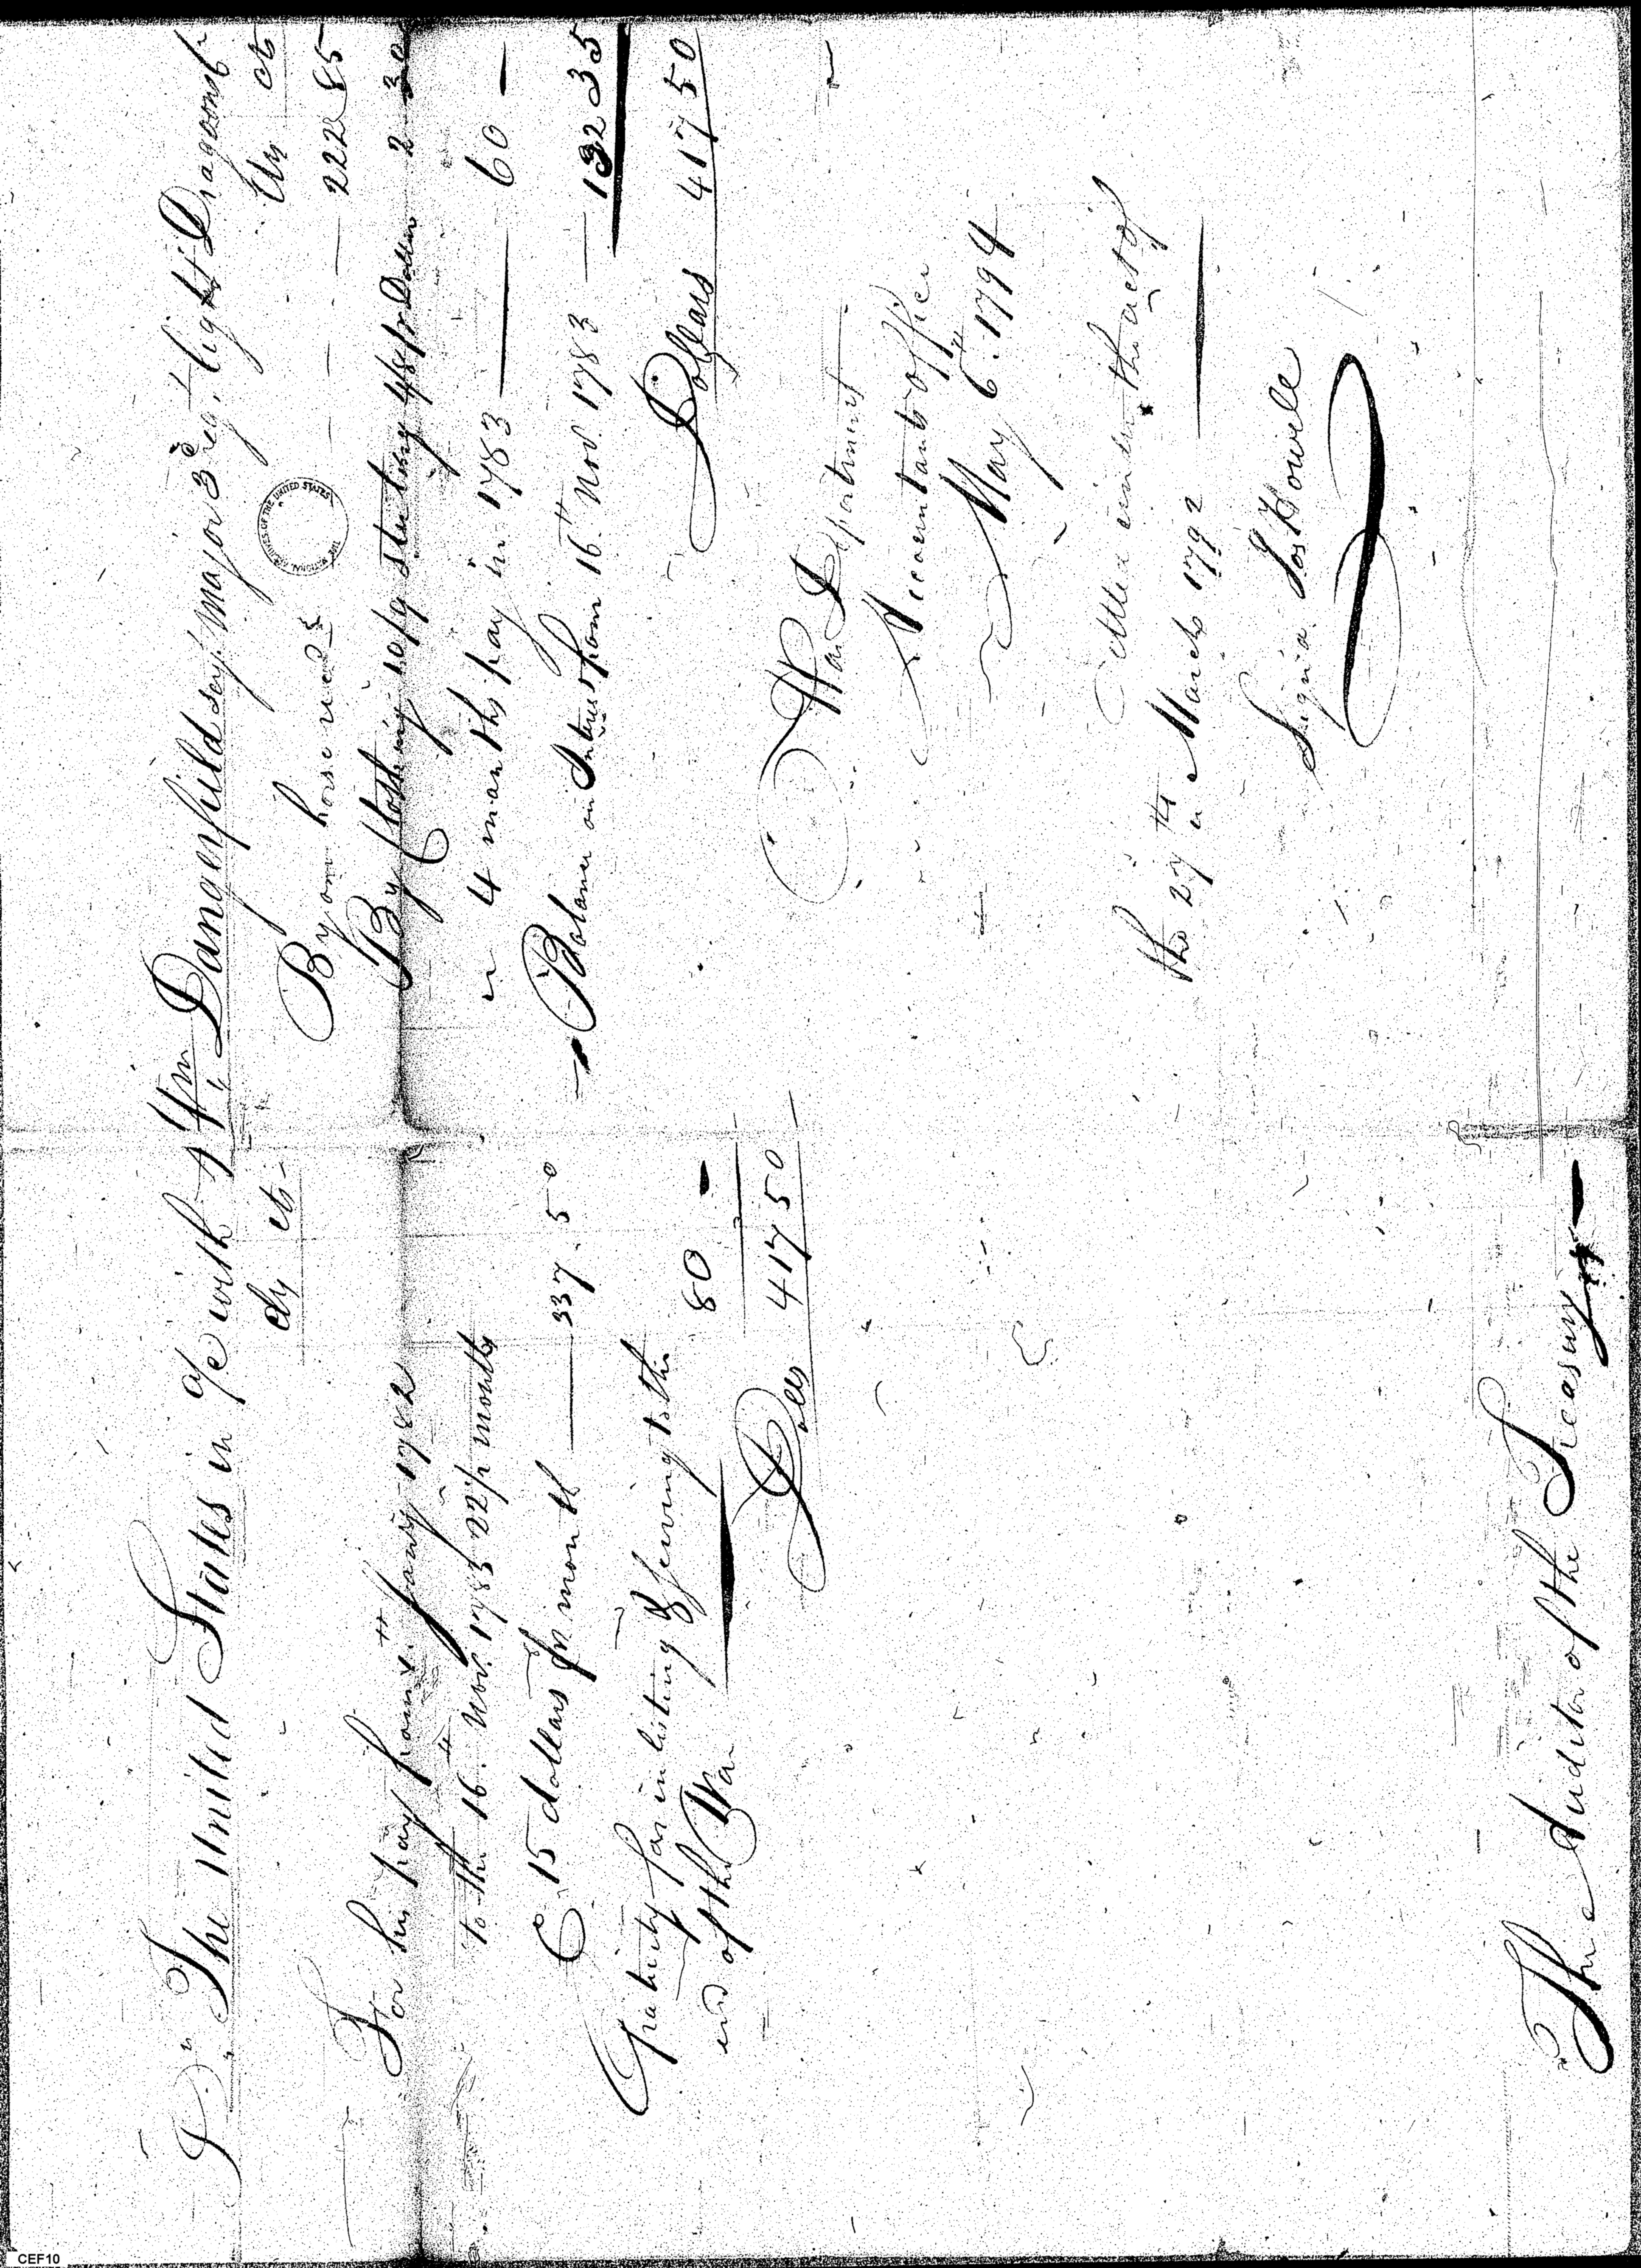 Dr. The United States in a/c with Wm. Dangerfield Serjt. Major 3d reg.t light Dragoons Cr
ds cts
For his pay from 1st Jany 1782
to the 16th Novr. 1783 22 1/2 months
@ 15 dollars pr month — 337.50
Gratuity for inlisting & serving to the
end of the War 80 —
Dolls 417 50
ds cts
By one horse recd. — — — 222 85
By Clothing 10/9 sterling 4/8 pr Dollar 2 30
" 4 months pay in 1783 — 60 —
Balance on Interest from 16th Novr. 1783 — 132 35
Dollars 417 50
War Department
Accountants Office
May 6th. 1794
Settled under the act of
the 27th March 1792
Signd. Jos Howell
The Auditor of the Treasury
THE NATIONAL ARCHIVES OF THE UNITED STATES
CEF10